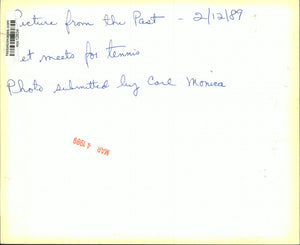 Picture from the Past - 2/12/89
et meets for tennis
Photo submitted by Carl Monica
MAR 4 1989